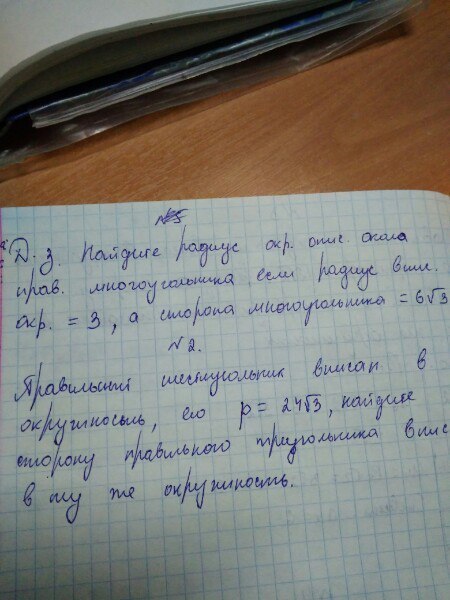 №5
Д. З. Найдите радиус окр. опис. около
прав. многоугольника если радиус впис.
окр. = 3, а сторона многоугольника = 6√3
№2.
Правильный шестиугольник вписан в
окружность, его p = 24√3, найдите
сторону правильного треугольника впис
в ту же окружность.